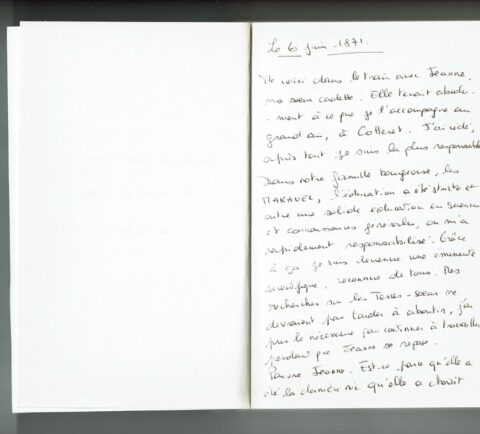 Le 6 juin 1871.
Me voici dans le train avec Jeanne,
ma sœur cadette. Elle tenait absolu-
-ment à ce que je l'accompagne au
grand air, à Cotteret. J'ai cédé,
après tout je suis la plus responsable
Dans notre famille bourgeoise, les
MARAVEL, l'éducation a été stricte et
outre une solide éducation en sciences
et connaissances générales, on m'a
rapidement responsabilisé. Grâce
à ça je suis devenue une éminente
scientifique, reconnue de tous. Mes
recherches sur les Terres-sœurs ne
devraient pas tarder à aboutir, j'ai
pris le nécessaire pour continuer à travailler
pendant que Jeanne se repose.
Pauvre Jeanne. Est-ce parce qu'elle a
été la dernière née qu'elle a choisit